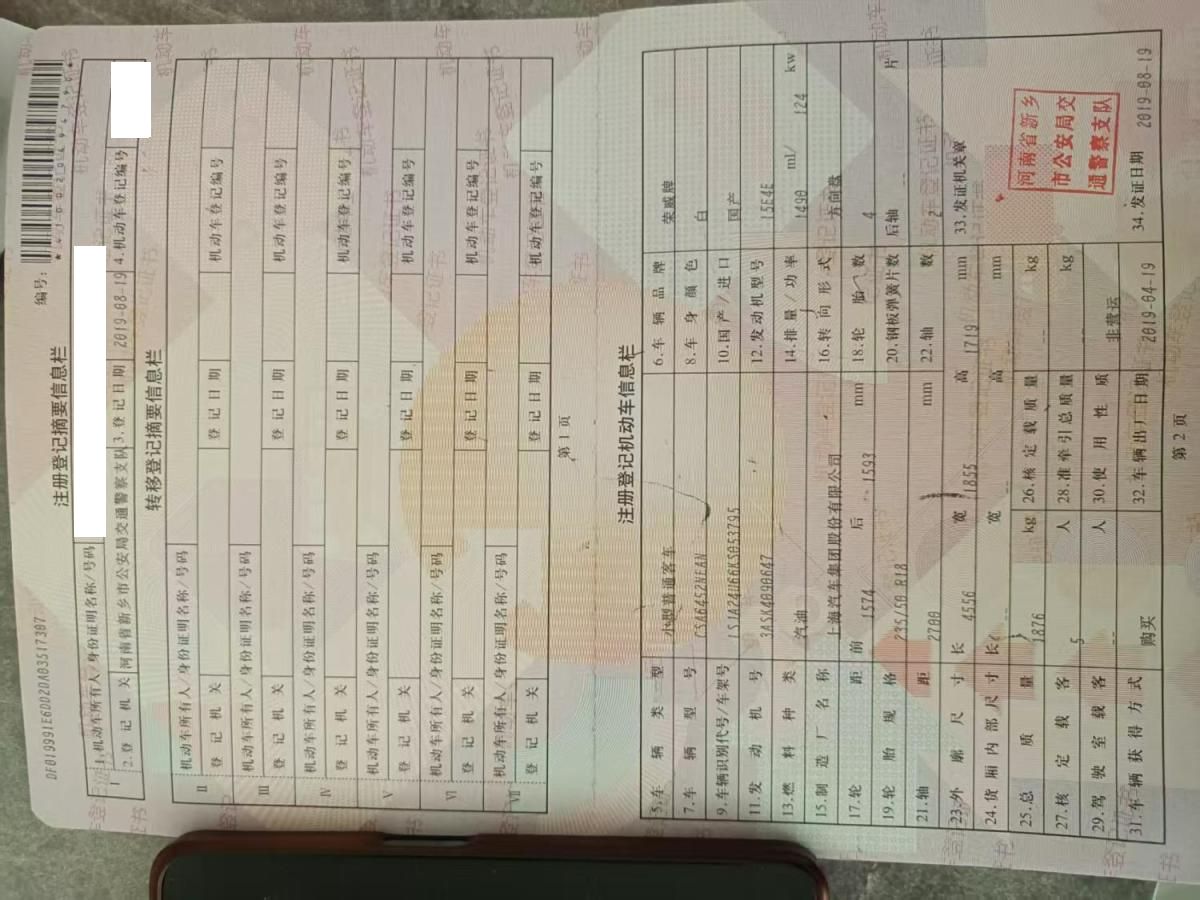 DF019991E6DD2DA03517307.
编号：
注册登记摘要信息栏
I
1.机动车所有人/身份证明名称/号码
2.登记机关 河南省新乡市公安局交通警察支队 3.登记日期 2019-08-19 4.机动车登记编号
转移登记摘要信息栏
机动车所有人/身份证明名称/号码
II 登记机关 登记日期 机动车登记编号
机动车所有人/身份证明名称/号码
III 登记机关 登记日期 机动车登记编号
机动车所有人/身份证明名称/号码
IV 登记机关 登记日期 机动车登记编号
机动车所有人/身份证明名称/号码
V 登记机关 登记日期 机动车登记编号
机动车所有人/身份证明名称/号码
VI 登记机关 登记日期 机动车登记编号
机动车所有人/身份证明名称/号码
VII 登记机关 登记日期 机动车登记编号
第1页
注册登记机动车信息栏
5.车辆类型 小型普通客车 6.车辆品牌 荣威牌
7.车辆型号 CSA6452NEAN 8.车身颜色 白
9.车辆识别代号/车架号 LSJA24U66KS053795 10.国产/进口 国产
11.发动机号 3ASA4090647 12.发动机型号 15E4E
13.燃料种类 汽油 14.排量/功率 1490 ml/ 124 kw
15.制造厂名称 上海汽车集团股份有限公司 16.转向形式 方向盘
17.轮距 前 1574 后 1593 mm 18.轮胎数 4
19.轮胎规格 235/50 R18 20.钢板弹簧片数 后轴 片
21.轴距 2700 mm 22.轴数 2
23.外廓尺寸 长 4556 宽 1855 高 1719 mm
24.货厢内部尺寸 长 宽 高 mm
25.总质量 1876 kg 26.核定载质量 kg
27.核定载客 5 人 28.准牵引总质量 kg
29.驾驶室载客 人 30.使用性质 非营运
31.车辆获得方式 购买 32.车辆出厂日期 2019-04-19
33.发证机关章
河南省新乡
市公安局交
通警察支队
34.发证日期 2019-08-19
第2页